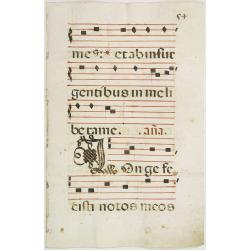 54
mes: * et ab insur
gentibus in me li
be ra me. aña.
Longe fe
cisti notos meos